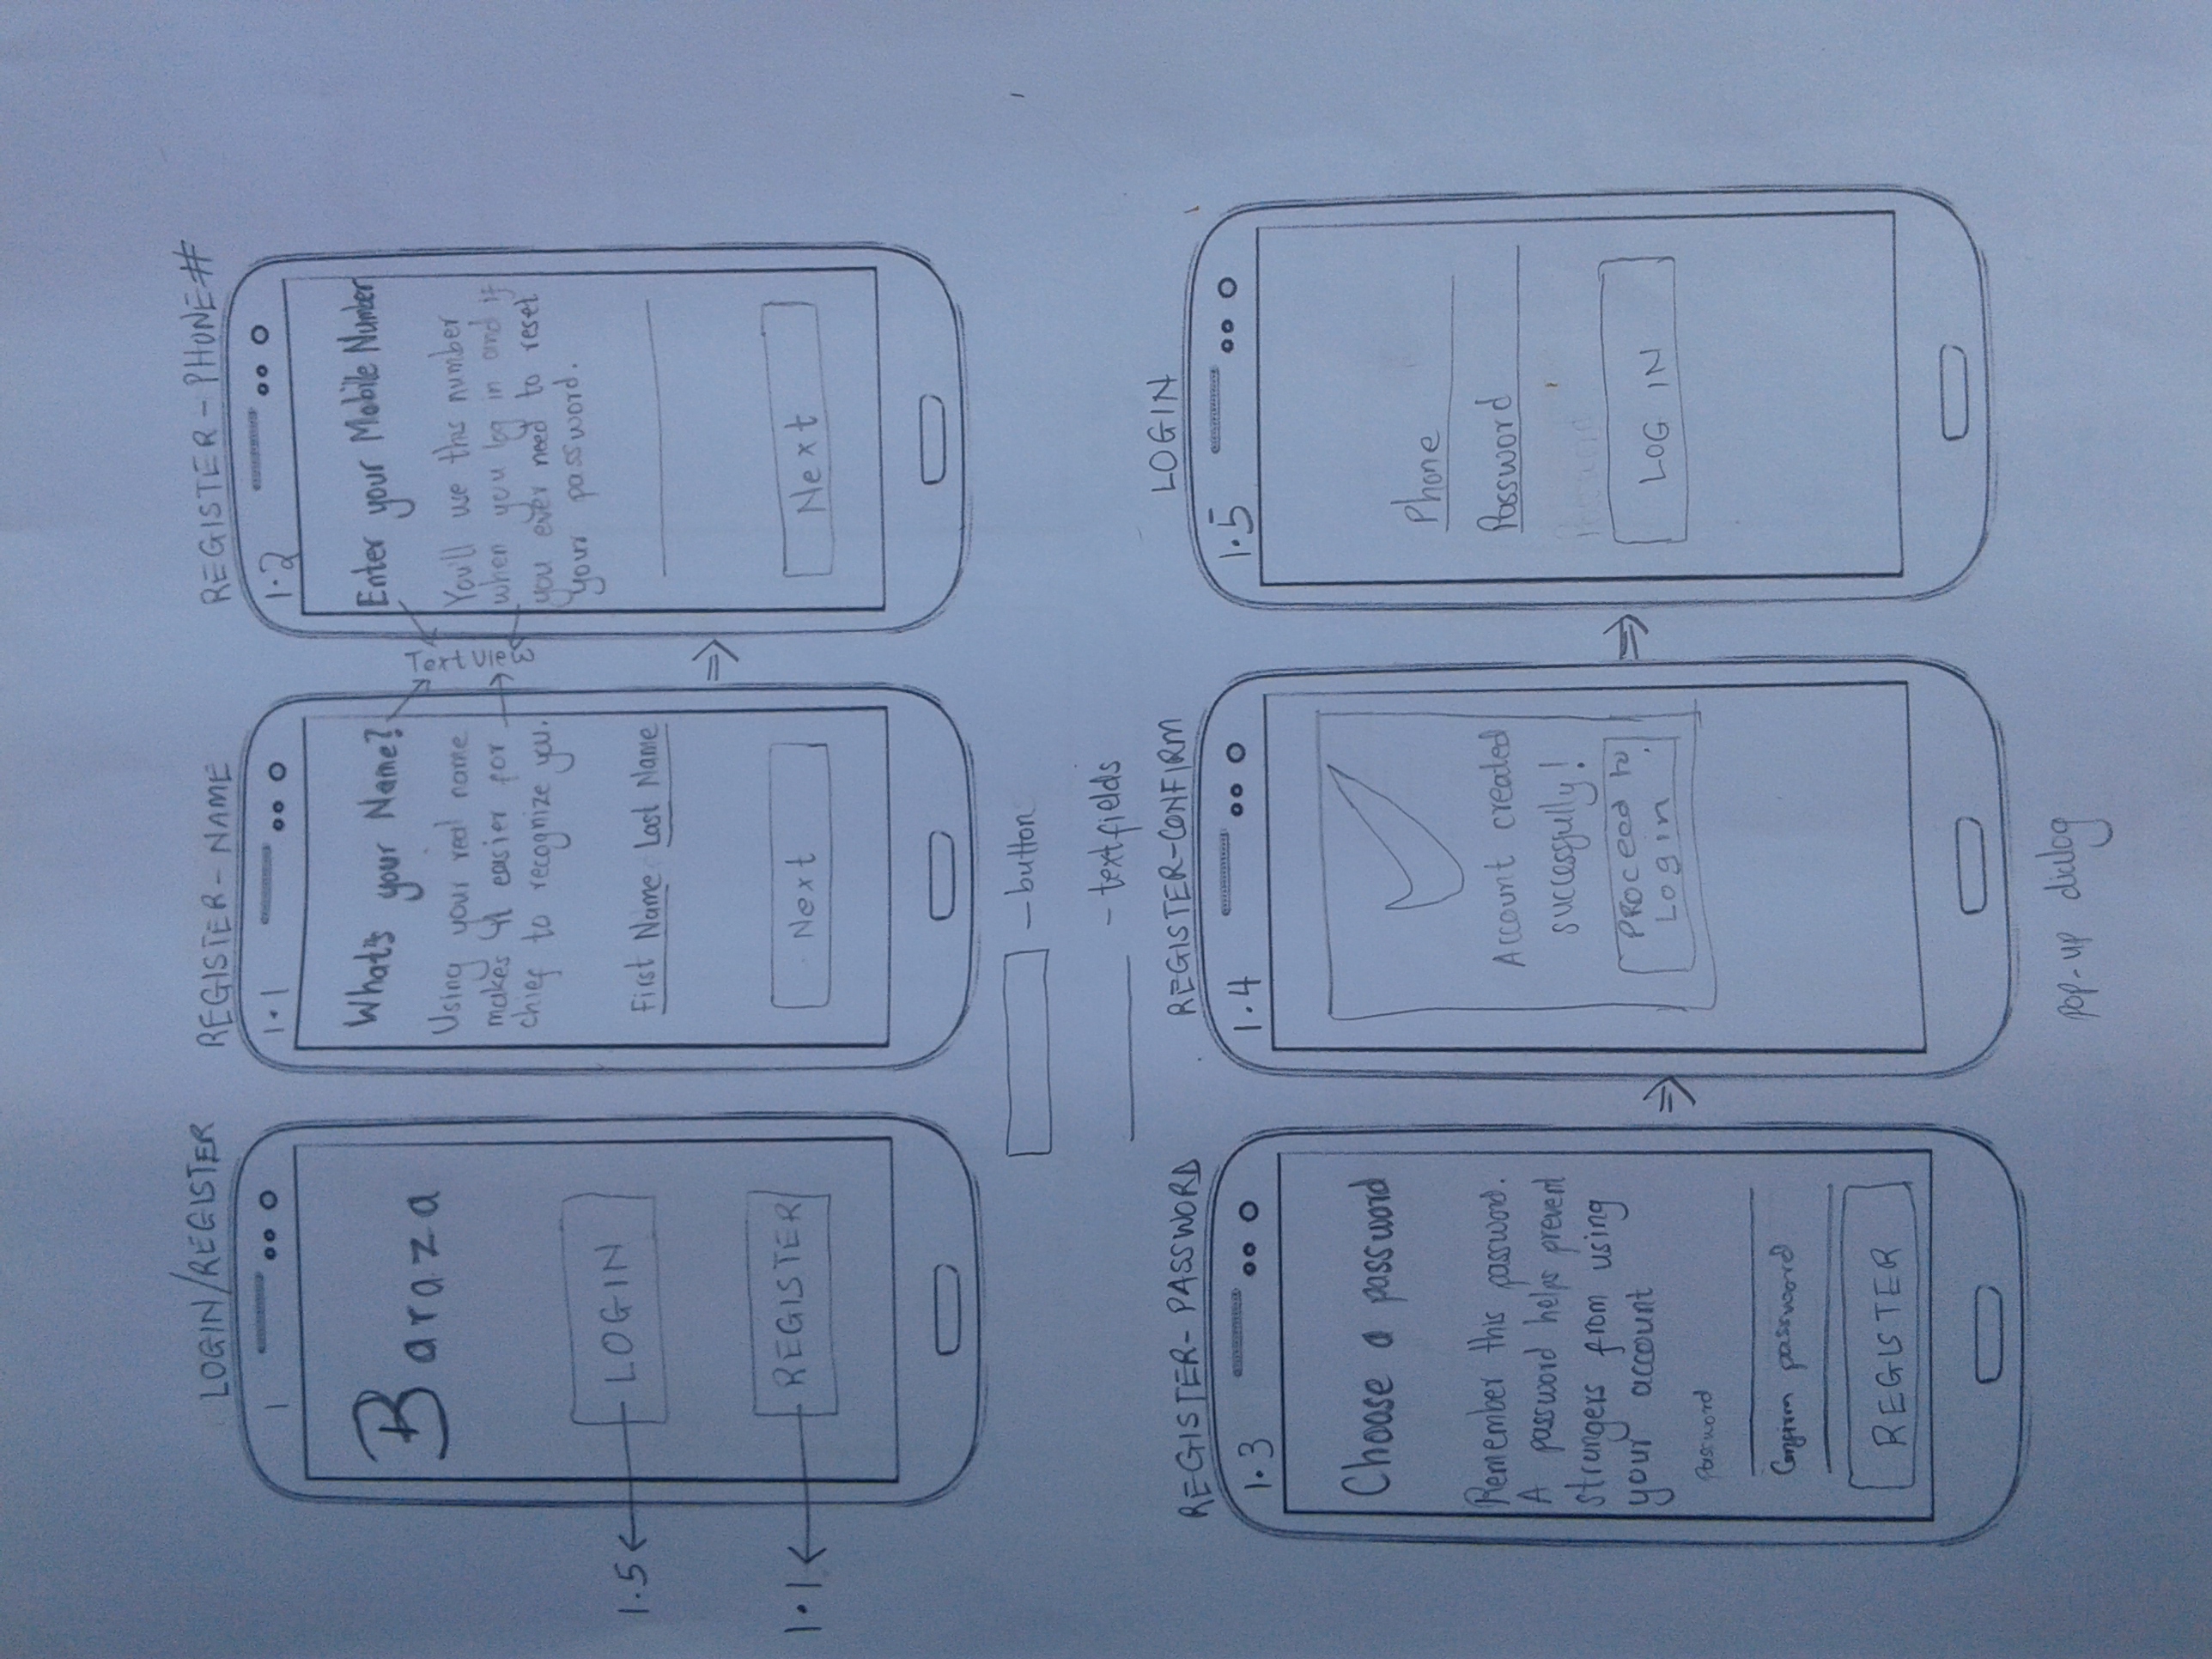 LOGIN/REGISTER
1
Baraza
LOGIN
1.5
REGISTER
1.1
REGISTER - NAME
1.1
What's your Name?
Using your real name
makes it easier for
chief to recognize you.
First Name Last Name
Next
Text View
REGISTER - PHONE#
1.2
Enter your Mobile Number
You'll use this number
when you log in and if
you ever need to reset
your password.
Next
- button
- textfields
REGISTER - PASSWORD
1.3
Choose a password
Remember this password.
A password helps prevent
strangers from using
your account
Password
Confirm password
REGISTER
REGISTER-CONFIRM
1.4
Account created
successfully!
PROCEED to
Login
pop-up dialog
LOGIN
1.5
Phone
Password
LOG IN